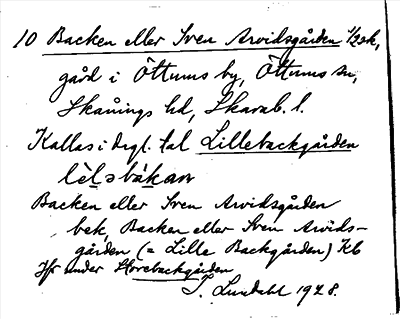 10 Backen eller Sven Arvidsgården 1/2 sk,
gård i Öttums by, Öttums sn,
Skånings hd, Skarab. l.
Kallas i dagl. tal Lillebackgården
lèlsbákan
Backen eller Sven Arvidsgården
bek, Backen eller Sven Arvids-
gården (= Lille Backgården) Kb
Jfr under Storebackgården
J. Lundahl 1928.